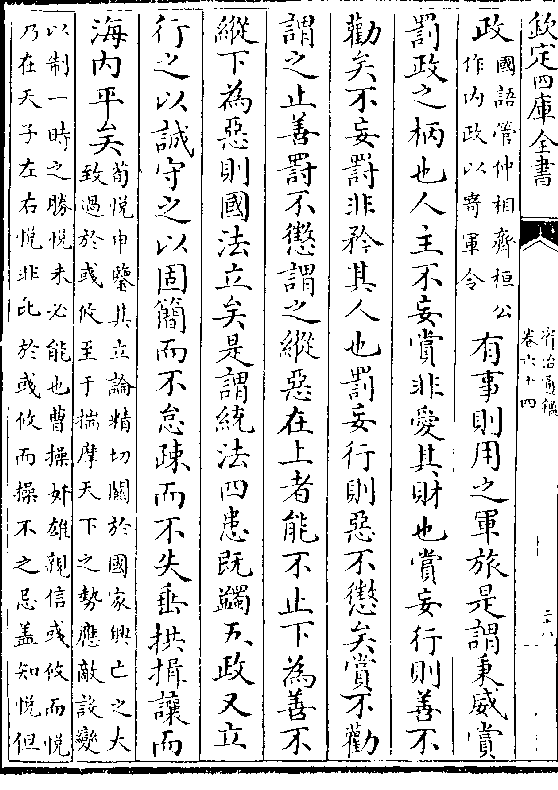 欽定四庫全書
資治通鑑
卷六十四
三八
政
國語管仲相齊桓公
作内政以寄軍令
有事則用之軍旅是謂秉威賞
罰政之柄也人主不妄賞非愛其財也賞妄行則善不
勸矣不妄罰非矜其人也罰妄行則惡不懲矣賞不勸
謂之止善罰不懲謂之縱惡在上者能不止下為善不
縱下為惡則國法立矣是謂統法四患既蠲五政又立
行之以誠守之以固簡而不怠疎而不失垂拱揖讓而
海内平矣
荀悦申鑒其立論精切關於國家興亡之大
致過於彧攸至于揣摩天下之勢應敵設變
以制一時之勝悦未必能也曹操奸雄親信彧攸而悦
乃在天子左右悦非比於彧攸而操不之忌蓋知悦但